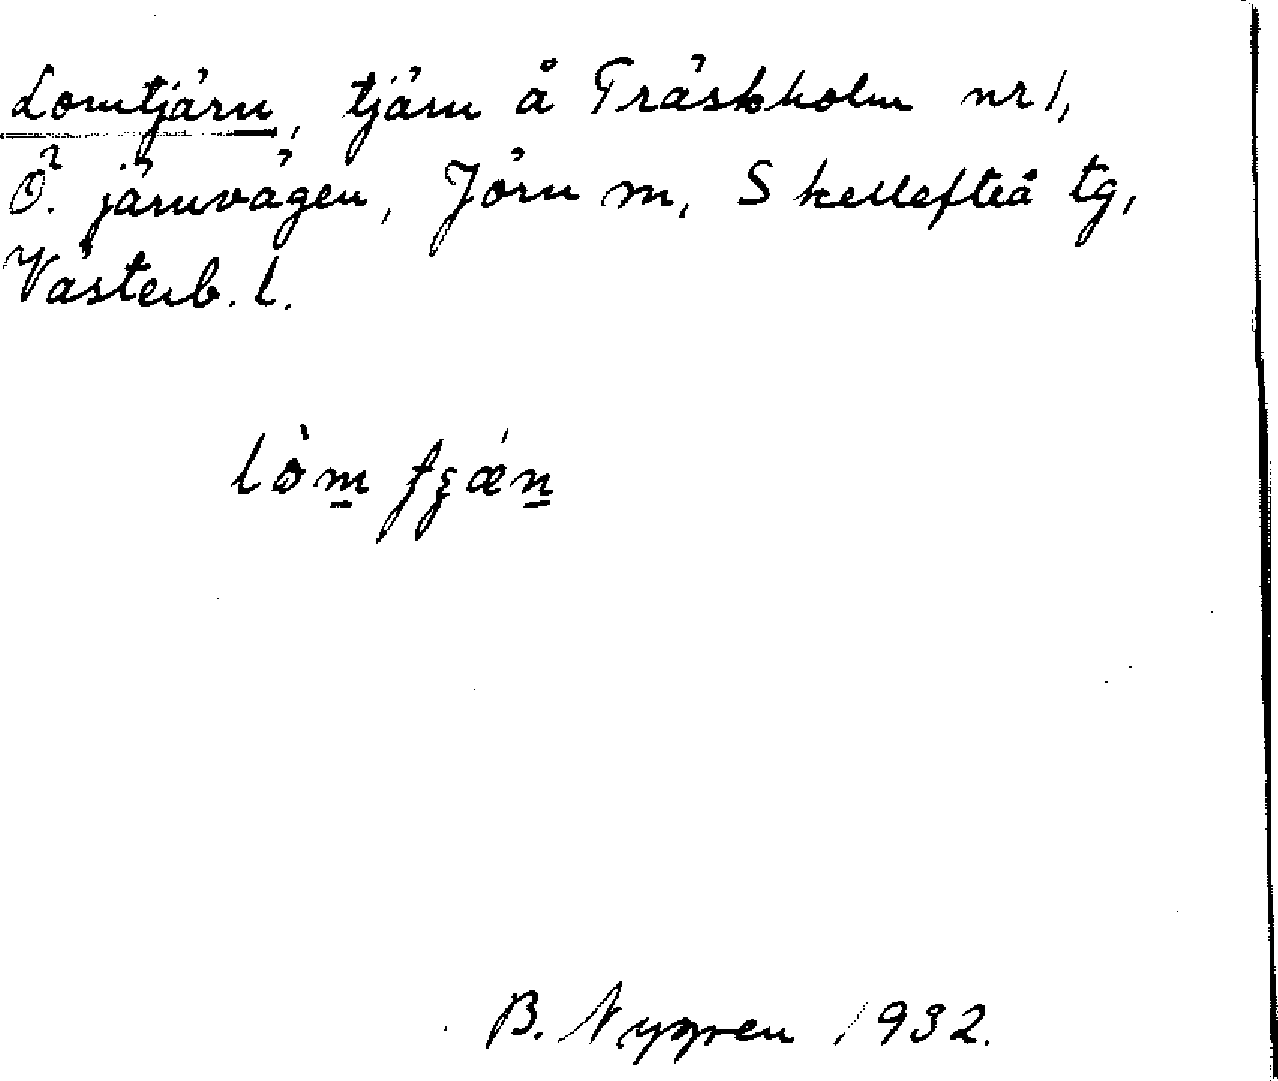 Lomtjärn, tjärn å Träskholm nr 1,
Ö. järnvägen, Jörn m, Skellefteå tg,
Västerb. l.
lòm
B. Nygren 1932.